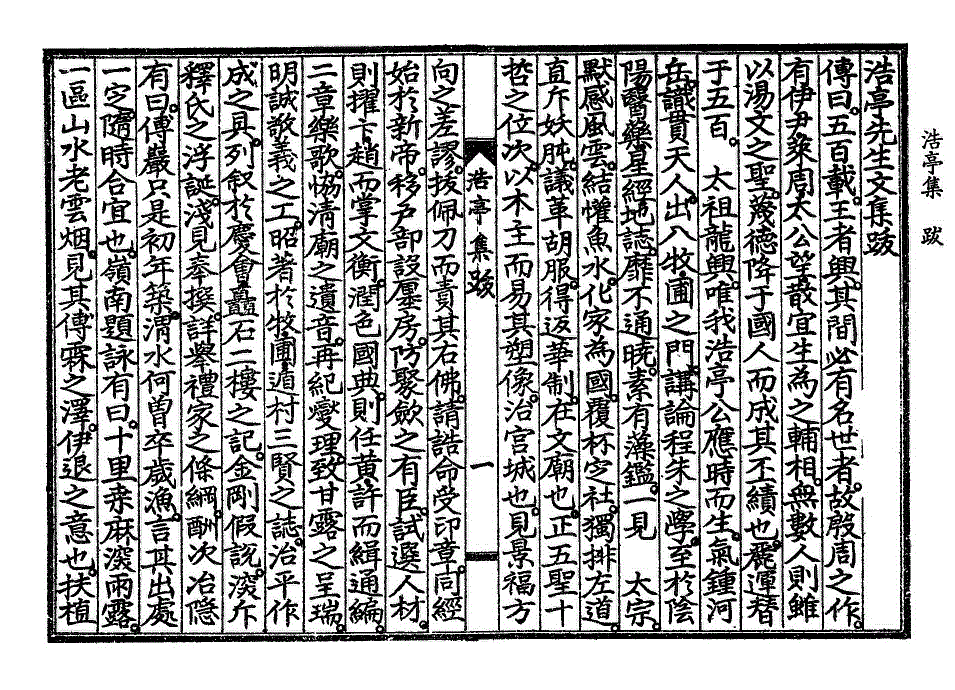 浩亭集 跋
浩亭先生文集跋
傳曰。五百載。王者興。其間必有名世者。故殷周之作。
有伊尹萊周太公望散宜生為之輔相。無數人則雖
以湯文之聖。蔑德降于國人而成其丕績也。麗運替
于五百。 太祖龍興。唯我浩亭公應時而生。氣鍾河
岳。識貫天人。出入牧圃之門。講論程朱之學。至於陰
陽醫藥星經地誌。靡不通曉。素有藻鑑。一見 太宗
默感風雲。結懽魚水。化家為國。覆杯定社。獨排左道
直斥妖肫。議革胡服。得返華制。在文廟也。正五聖十
哲之位次。以木主而易其塑像。治宮城也。見景福方
浩亭集跋
一
向之差謬。拔佩刀而責其石佛。請誥命受印章。同經
始於新帝。移戶部設廛房。防聚斂之有臣。試選人材。
則擢卞趙而掌文衡。潤色國典。則任黃許而緝通編
二章樂歌。恊淸廟之遺音。再紀燮理。致甘露之呈瑞
明誠敬義之工。昭著於牧圃。遁村三賢之誌。治平作
成之具。列叙於慶會矗石二樓之記。金剛假說。深斥
釋氏之浮誕。淺見奉摸。詳舉禮家之條綱。酬次冶隱
有曰。傅嚴只是初年築。渭水何曾卒歲漁。言其出處
一定。隨時合宜也。嶺南題詠有曰。十里桒麻深雨露。
一區山水老雲烟。見其傅霖之澤。伊退之意也。扶植